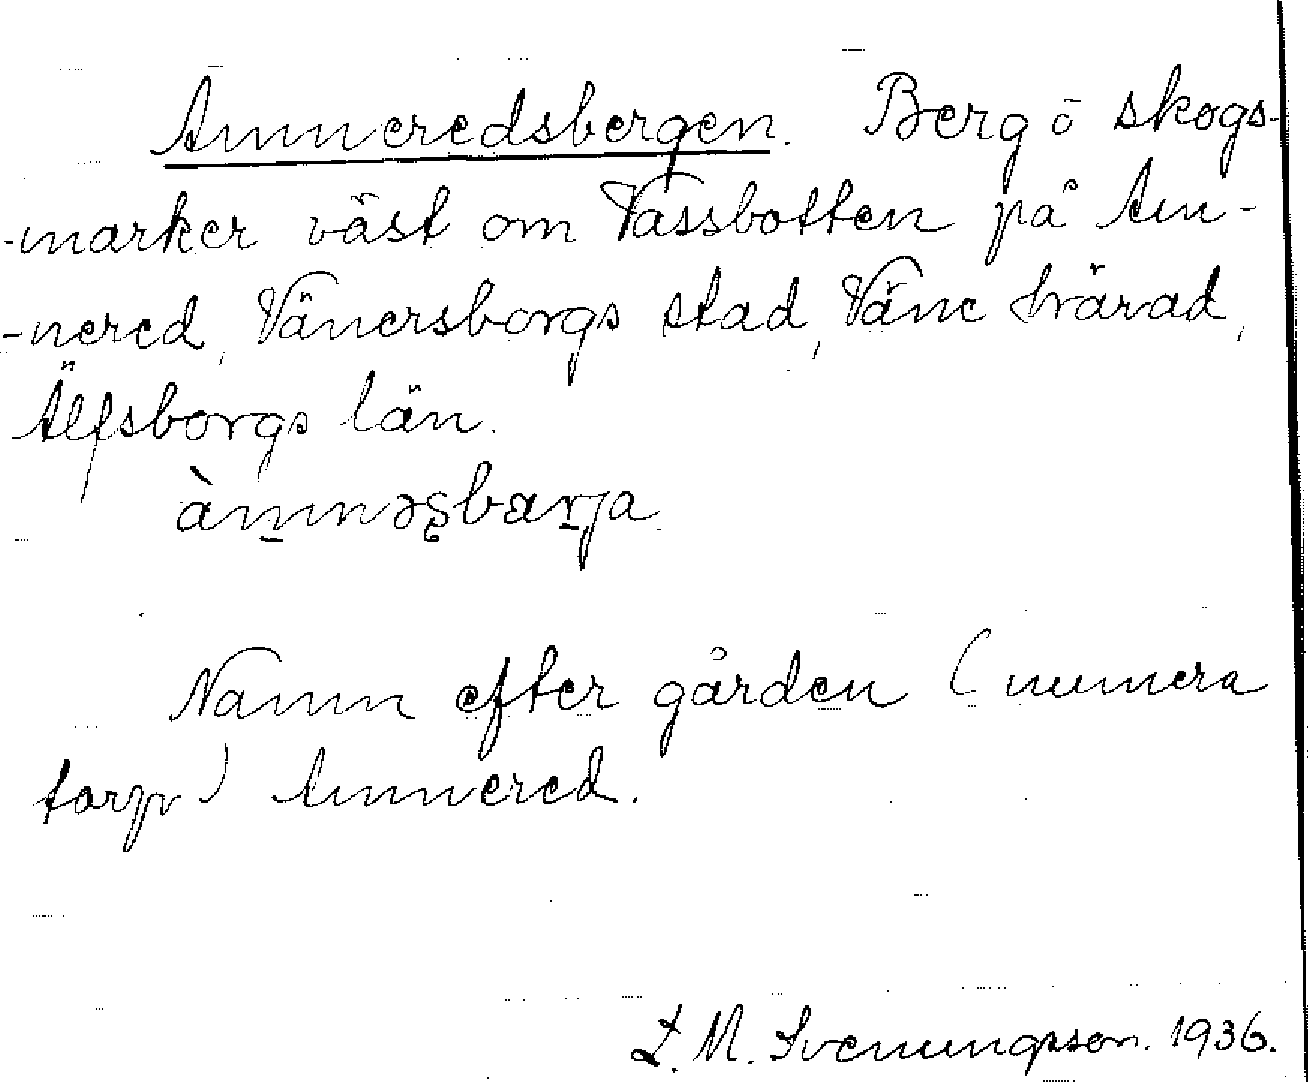 Annneredsbergen. Berg o skogs-
-marker väst om Vassbotten på An-
-nered, Vänersborgs stad, Väne härad,
Älfsborgs län.
Namn efter gården (numera
torp) Annered.
L. M. Svenungsson. 1936.